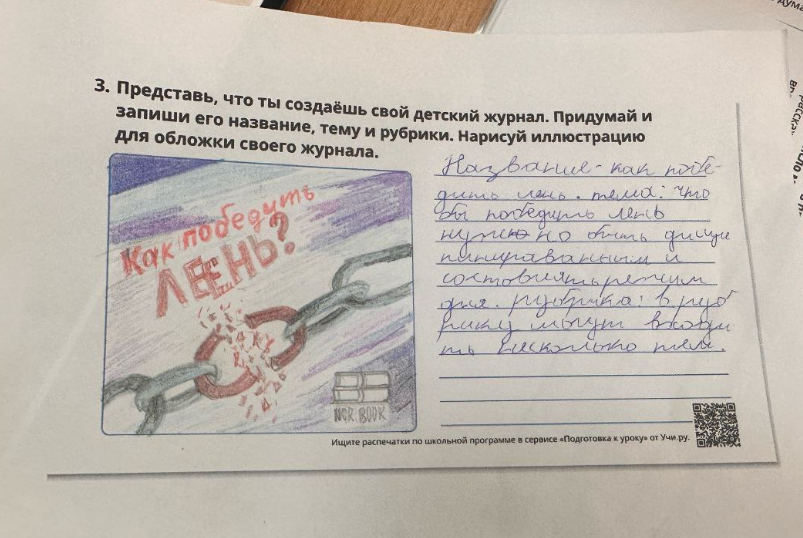 3. Представь, что ты создаёшь свой детский журнал. Придумай и
запиши его название, тему и рубрики. Нарисуй иллюстрацию
для обложки своего журнала.
Как победить
ЛЕЕНЬ?
NOR.BOOK
Название - как побе-
дить лень. тема: что
бы победить лень
нужно но быть дисци
пинираванным и
состовлять режим
дня. рубрика: в руб
рику могут входи
ть несколько тем.
Ищите распечатки по школьной программе в сервисе «Подготовка к уроку» от Учи.ру.